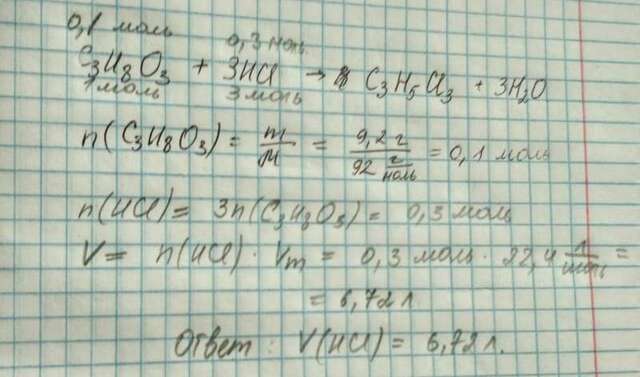 0,1 моль 0,3 моль
C₃H₈O₃ + 3HCl → C₃H₅Cl₃ + 3H₂O
1 моль 3 моль
n(C₃H₈O₃) = m/M = 9,2 г / 92 г/моль = 0,1 моль
n(HCl) = 3n(C₃H₈O₃) = 0,3 моль
V = n(HCl) · Vm = 0,3 моль · 22,4 л/моль =
= 6,72 л
Ответ: V(HCl) = 6,72 л.